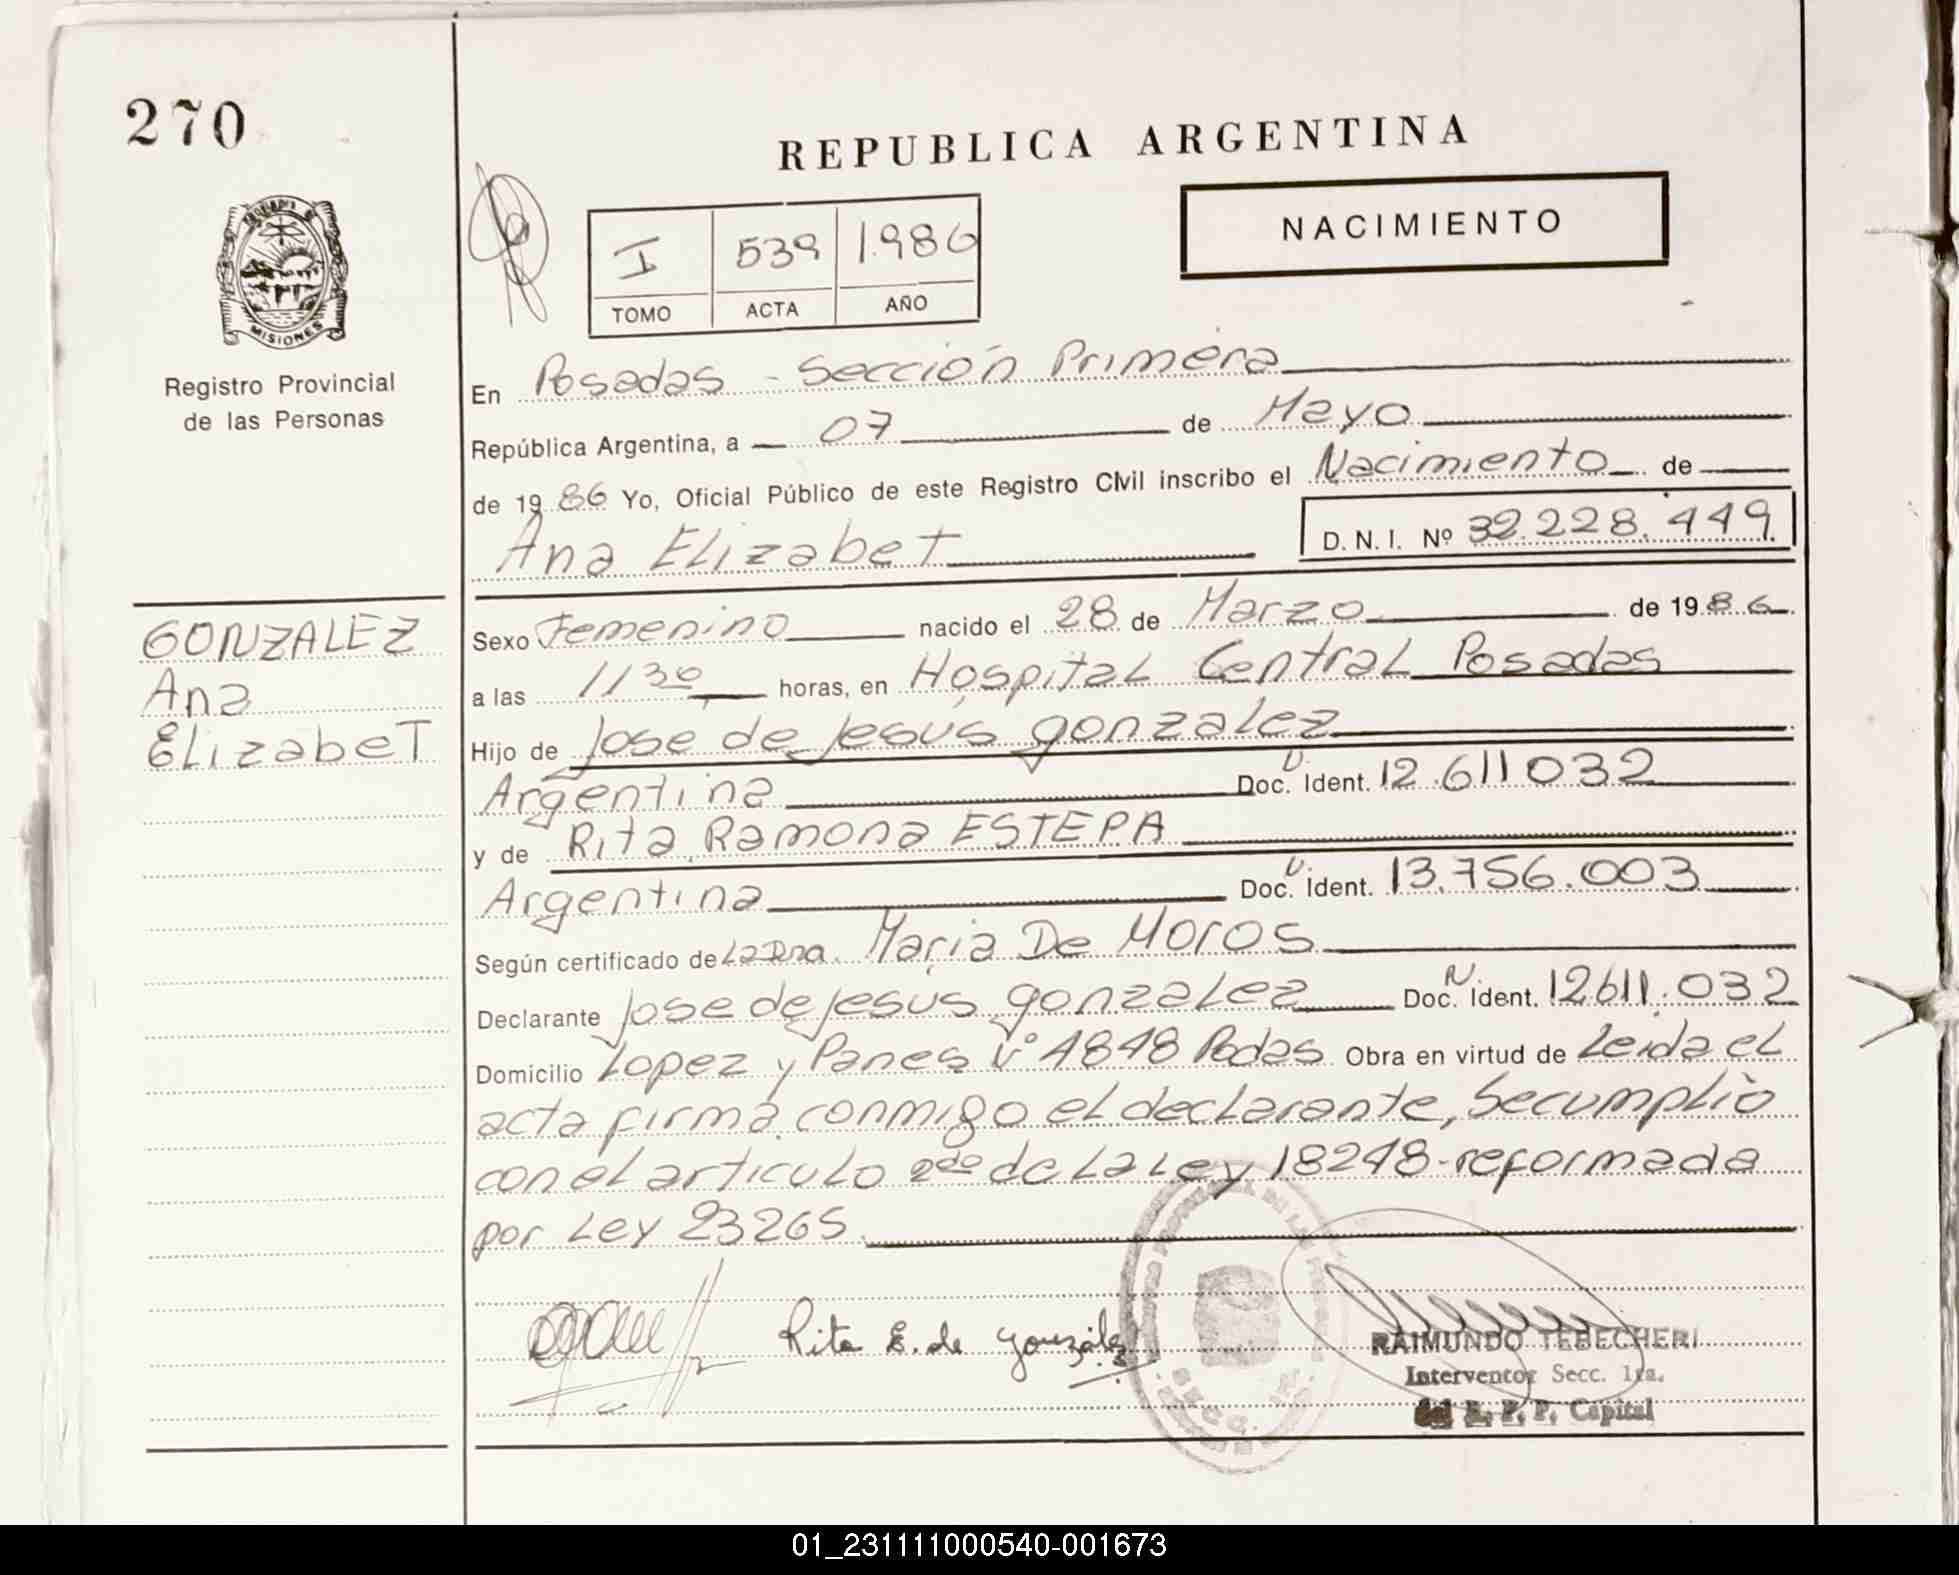 270
REPUBLICA ARGENTINA
NACIMIENTO
I 539 1.986
TOMO ACTA AÑO
MISIONES
Registro Provincial
de las Personas
En Posadas - Sección Primera
República Argentina, a 07 de Mayo
de 1986 Yo, Oficial Público de este Registro Civil inscribo el Nacimiento de
Ana Elizabet D. N. I. Nº 32.228.449
GONZALEZ
Ana
Elizabet
Sexo Femenino nacido el 28 de Marzo de 1986
a las 1130 horas, en Hospital Central Posadas
Hijo de Jose de Jesus gonzalez
Argentina Doc. Ident. 12.611032
y de Rita Ramona ESTEPA
Argentina Doc. Ident. 13.756.003
Según certificado de La Dra. Maria De Moros
Declarante Jose de Jesus gonzalez Doc. Ident. 12611.032
Domicilio Lopez y Panes Nº 4848 Pdas. Obra en virtud de Leida el
acta firma conmigo el declarante, Secumplió
con el articulo 2do de La Ley 18248-reformada
por Ley 23265
Rita E. de González
RAIMUNDO TEBECHERI
Interventor Secc. 1ra.
del R. P. P. Capital
SECC. 1ª
01_231111000540-001673